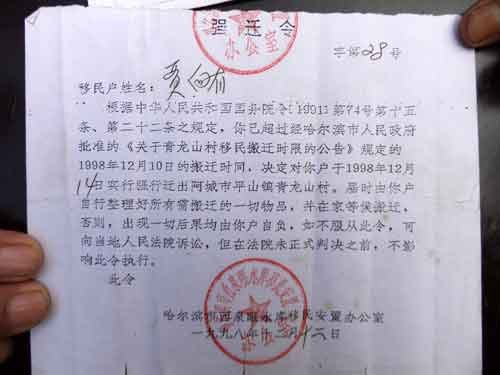 强迁令
办公室
字第28号
移民户姓名：贾
根据中华人民共和国国务院令[1991]第74号第十五
条、第二十二条之规定，你已超过经哈尔滨市人民政府
批准的《关于青龙山村移民搬迁时限的公告》规定的
1998年12月10日的搬迁时间，决定对你户于1998年12月
14日实行强行迁出阿城市平山镇青龙山村。届时由你户
自行整理好所有需搬迁的一切物品，并在家等候搬迁，
否则，出现一切后果均由你户自负，如不服从此令，可
向当地人民法院诉讼，但在法院未正式判决之前，不影
响此令执行。
此令
哈尔滨市西泉眼水库移民安置办公室
一九九八年十二月十二日